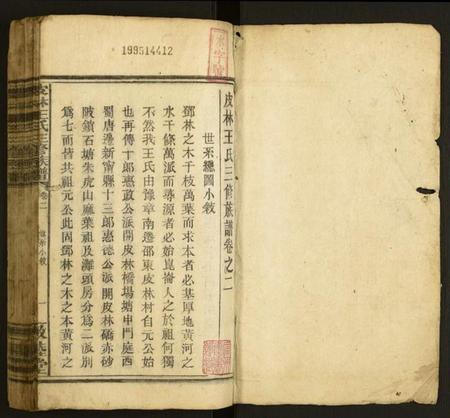 199514412
皮林王氏三修族譜卷之二
世系總圖小敘
鄧林之木千枝萬葉而求本者必基厚地黃河之
水千條萬派而尋源者必始崑崙人之於祖何獨
不然我王氏由豫章南遷邵東皮林村自元公始
也再傳十郎惠政公派開皮林橋場塘中門庭西
蜀唐灣新甯縣十三郎惠德公派開皮林礄赤砂
陂鎖石塘朱虎山麻葉祖及灘頭房分爲二派別
爲七而皆共祖元公此固鄧林之木之本黃河之
皮林王氏三修族譜
卷二
世系小敘
一